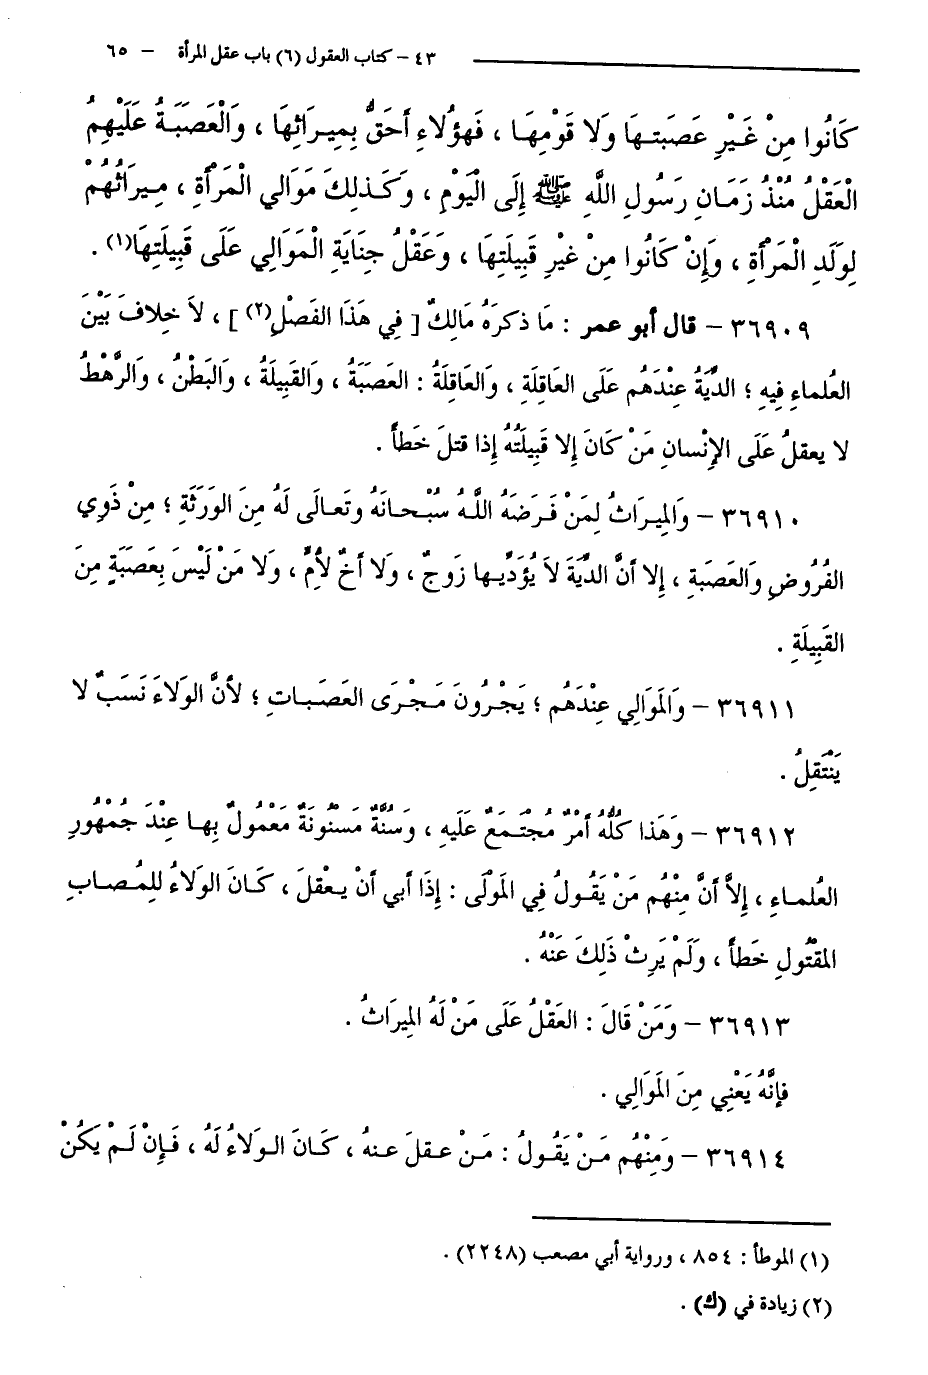 ٤٣ – كتاب العقول (٦) باب عقل المرأة – ٦٥
كَانُوا مِنْ غَيْرِ عَصَبَتِهَا وَلَا قَوْمِهَا ، فَهؤُلاءِ أَحَقُّ بِمِيرَاثِهَا ، وَالْعَصَبَةُ عَلَيْهِمُ
الْعَقْلُ مُنْذُ زَمَانِ رَسُولِ اللَّهِ ﷺ إِلَى الْيَوْمِ ، وَكَذلِكَ مَوَالِي الْمَرْأَةِ ، مِيرَاثُهُمْ
لِوَلَدِ الْمَرْأَةِ ، وَإِنْ كَانُوا مِنْ غَيْرِ قَبِيلَتِهَا ، وَعَقْلُ جِنَايَةِ الْمَوَالِي عَلَى قَبِيلَتِهَا(١) .
٣٦٩٠٩ – قال أبو عمر : مَا ذكرَهُ مَالِكٌ [ فِي هَذَا الفَصْلِ(٢) ] ، لاَ خِلافَ بَيْنَ
العُلماءِ فِيهِ ؛ الدِّيَةُ عِنْدَهُم عَلَى العَاقِلَةِ ، وَالعَاقِلَةُ : العَصَبَةُ ، وَالقَبِيلَةُ ، وَالبَطْنُ ، وَالرَّهْطُ
لا يعقلُ عَلَى الإِنْسانِ مَنْ كَانَ إِلا قَبِيلَتُهُ إِذا قتلَ خَطأً .
٣٦٩١٠ – وَالمِيرَاثُ لِمَنْ فَرَضَهُ اللَّهُ سُبْحانَهُ وتَعالَى لَهُ مِنَ الوَرَثَةِ ؛ مِنْ ذَوِي
الفُرُوضِ وَالعَصَبَةِ ، إِلا أَنَّ الدِّيَةَ لاَ يُؤَدِّيها زَوجٌ ، وَلا أَخٌ لأُمٍّ ، وَلا مَنْ لَيْسَ بِعَصَبَةٍ مِنَ
القَبِيلَةِ .
٣٦٩١١ – وَالمَوَالِي عِنْدَهُم ؛ يَجْرُونَ مَجْرَى العَصَباتِ ؛ لأَنَّ الوَلاءَ نَسَبٌ لا
يَنْتَقِلُ .
٣٦٩١٢ – وَهَذا كُلُّهُ أَمْرٌ مُجْتَمَعٌ عَلَيهِ ، وَسُنَّةٌ مَسنُونَةٌ مَعْمُولٌ بِها عِنْدَ جُمْهُورِ
العُلماءِ ، إِلاَّ أَنَّ مِنْهُم مَنْ يَقُولُ فِي المَوْلَى : إِذَا أبي أَنْ يعْقلَ ، كَانَ الوَلاءُ لِلمُصابِ
المقْتُولِ خَطأً ، وَلَمْ يَرِثْ ذَلِكَ عَنْهُ .
٣٦٩١٣ – وَمَنْ قَالَ : العَقْلُ عَلَى مَنْ لَهُ المِيرَاثُ .
فإِنَّهُ يَعْنِي مِنَ المَوالِي .
٣٦٩١٤ – وَمِنْهُم مَنْ يَقُولُ : مَنْ عقلَ عنهُ ، كَانَ الوَلاءُ لَهُ ، فَإِنْ لَمْ يَكُنْ
(١) الموطأ : ٨٥٤ ، ورواية أبي مصعب (٢٢٤٨) .
(٢) زيادة في (ك) .